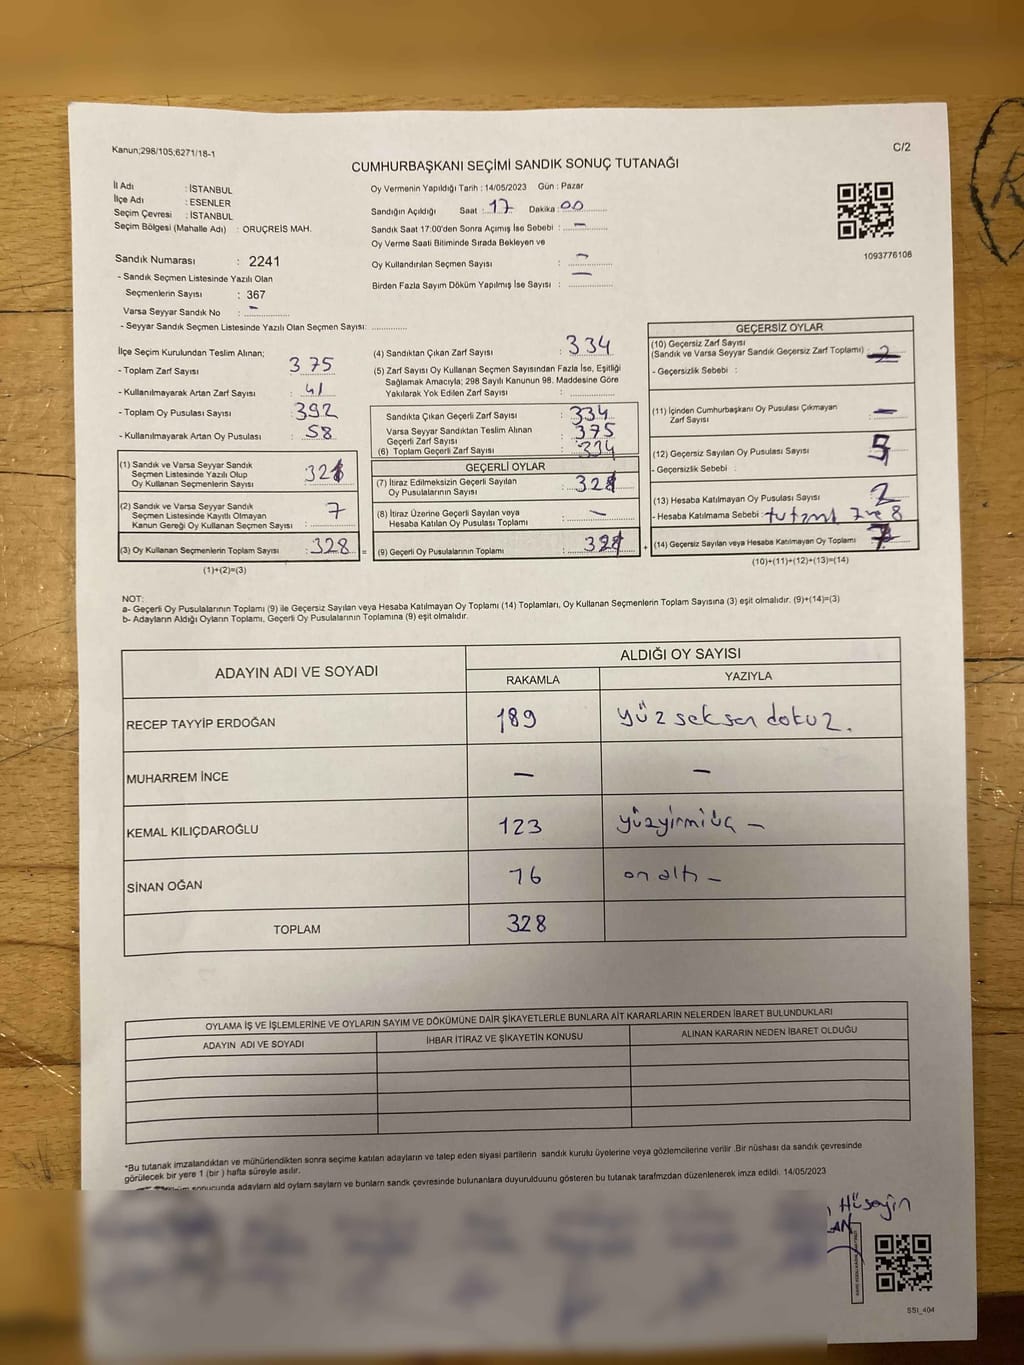 Kanun;298/105;6271/18-1
C/2
CUMHURBAŞKANI SEÇİMİ SANDIK SONUÇ TUTANAĞI
İl Adı : İSTANBUL
İlçe Adı : ESENLER
Seçim Çevresi : İSTANBUL
Seçim Bölgesi (Mahalle Adı) : ORUÇREİS MAH.
Sandık Numarası : 2241
- Sandık Seçmen Listesinde Yazılı Olan
Seçmenlerin Sayısı : 367
Varsa Seyyar Sandık No : –
- Seyyar Sandık Seçmen Listesinde Yazılı Olan Seçmen Sayısı: ............
Oy Vermenin Yapıldığı Tarih : 14/05/2023 Gün : Pazar
Sandığın Açıldığı Saat : 17 Dakika : 00
Sandık Saat 17:00'den Sonra Açımış İse Sebebi : –
Oy Verme Saati Bitiminde Sırada Bekleyen ve
Oy Kullandırılan Seçmen Sayısı : –
Birden Fazla Sayım Döküm Yapılmış İse Sayısı : –
1093776106
İlçe Seçim Kurulundan Teslim Alınan;
- Toplam Zarf Sayısı : 375
- Kullanılmayarak Artan Zarf Sayısı : 41
- Toplam Oy Pusulası Sayısı : 392
- Kullanılmayarak Artan Oy Pusulası : 58
(1) Sandık ve Varsa Seyyar Sandık
Seçmen Listesinde Yazılı Olup
Oy Kullanan Seçmenlerin Sayısı :
(2) Sandık ve Varsa Seyyar Sandık
Seçmen Listesinde Kayıtlı Olmayan
Kanun Gereği Oy Kullanan Seçmen Sayısı : 7
(3) Oy Kullanan Seçmenlerin Toplam Sayısı : 328 =
(1)+(2)=(3)
(4) Sandıktan Çıkan Zarf Sayısı : 334
(5) Zarf Sayısı Oy Kullanan Seçmen Sayısından Fazla İse, Eşitliği
Sağlamak Amacıyla; 298 Sayılı Kanunun 98. Maddesine Göre
Yakılarak Yok Edilen Zarf Sayısı :
Sandıkta Çıkan Geçerli Zarf Sayısı : 334
Varsa Seyyar Sandıktan Teslim Alınan
Geçerli Zarf Sayısı : 375
(6) Toplam Geçerli Zarf Sayısı : 334
GEÇERLİ OYLAR
(7) İtiraz Edilmeksizin Geçerli Sayılan
Oy Pusulalarının Sayısı : 328
(8) İtiraz Üzerine Geçerli Sayılan veya
Hesaba Katılan Oy Pusulası Toplamı : –
(9) Geçerli Oy Pusulalarının Toplamı : 328 +
GEÇERSİZ OYLAR
(10) Geçersiz Zarf Sayısı
(Sandık ve Varsa Seyyar Sandık Geçersiz Zarf Toplamı) : 2
- Geçersizlik Sebebi :
(11) İçinden Cumhurbaşkanı Oy Pusulası Çıkmayan
Zarf Sayısı : –
(12) Geçersiz Sayılan Oy Pusulası Sayısı :
- Geçersizlik Sebebi :
(13) Hesaba Katılmayan Oy Pusulası Sayısı : 2
- Hesaba Katılmama Sebebi : 7 ve 8
(14) Geçersiz Sayılan veya Hesaba Katılmayan Oy Toplamı :
(10)+(11)+(12)+(13)=(14)
NOT:
a- Geçerli Oy Pusulalarının Toplamı (9) ile Geçersiz Sayılan veya Hesaba Katılmayan Oy Toplamı (14) Toplamları, Oy Kullanan Seçmenlerin Toplam Sayısına (3) eşit olmalıdır. (9)+(14)=(3)
b- Adayların Aldığı Oyların Toplamı, Geçerli Oy Pusulalarının Toplamına (9) eşit olmalıdır.
ADAYIN ADI VE SOYADI
ALDIĞI OY SAYISI
RAKAMLA YAZIYLA
RECEP TAYYİP ERDOĞAN 189 yüz seksen dokuz.
MUHARREM İNCE – –
KEMAL KILIÇDAROĞLU 123 yüzyirmiüç –
SİNAN OĞAN 16 on altı –
TOPLAM 328
OYLAMA İŞ VE İŞLEMLERİNE VE OYLARIN SAYIM VE DÖKÜMÜNE DAİR ŞİKAYETLERLE BUNLARA AİT KARARLARIN NELERDEN İBARET BULUNDUKLARI
ADAYIN ADI VE SOYADI İHBAR İTİRAZ VE ŞİKAYETİN KONUSU ALINAN KARARIN NEDEN İBARET OLDUĞU
*Bu tutanak imzalandıktan ve mühürlendikten sonra seçime katılan adayların ve talep eden siyasi partilerin sandık kurulu üyelerine veya gözlemcilerine verilir .Bir nüshası da sandık çevresinde
görülecek bir yere 1 (bir ) hafta süreyle asılır.
sonucunda adayların ald oyların sayların ve bunların sandk çevresinde bulunanlara duyurulduunu gösteren bu tutanak tarafmzdan düzenlenerek imza edildi. 14/05/2023
Hüseyin
SSI_404